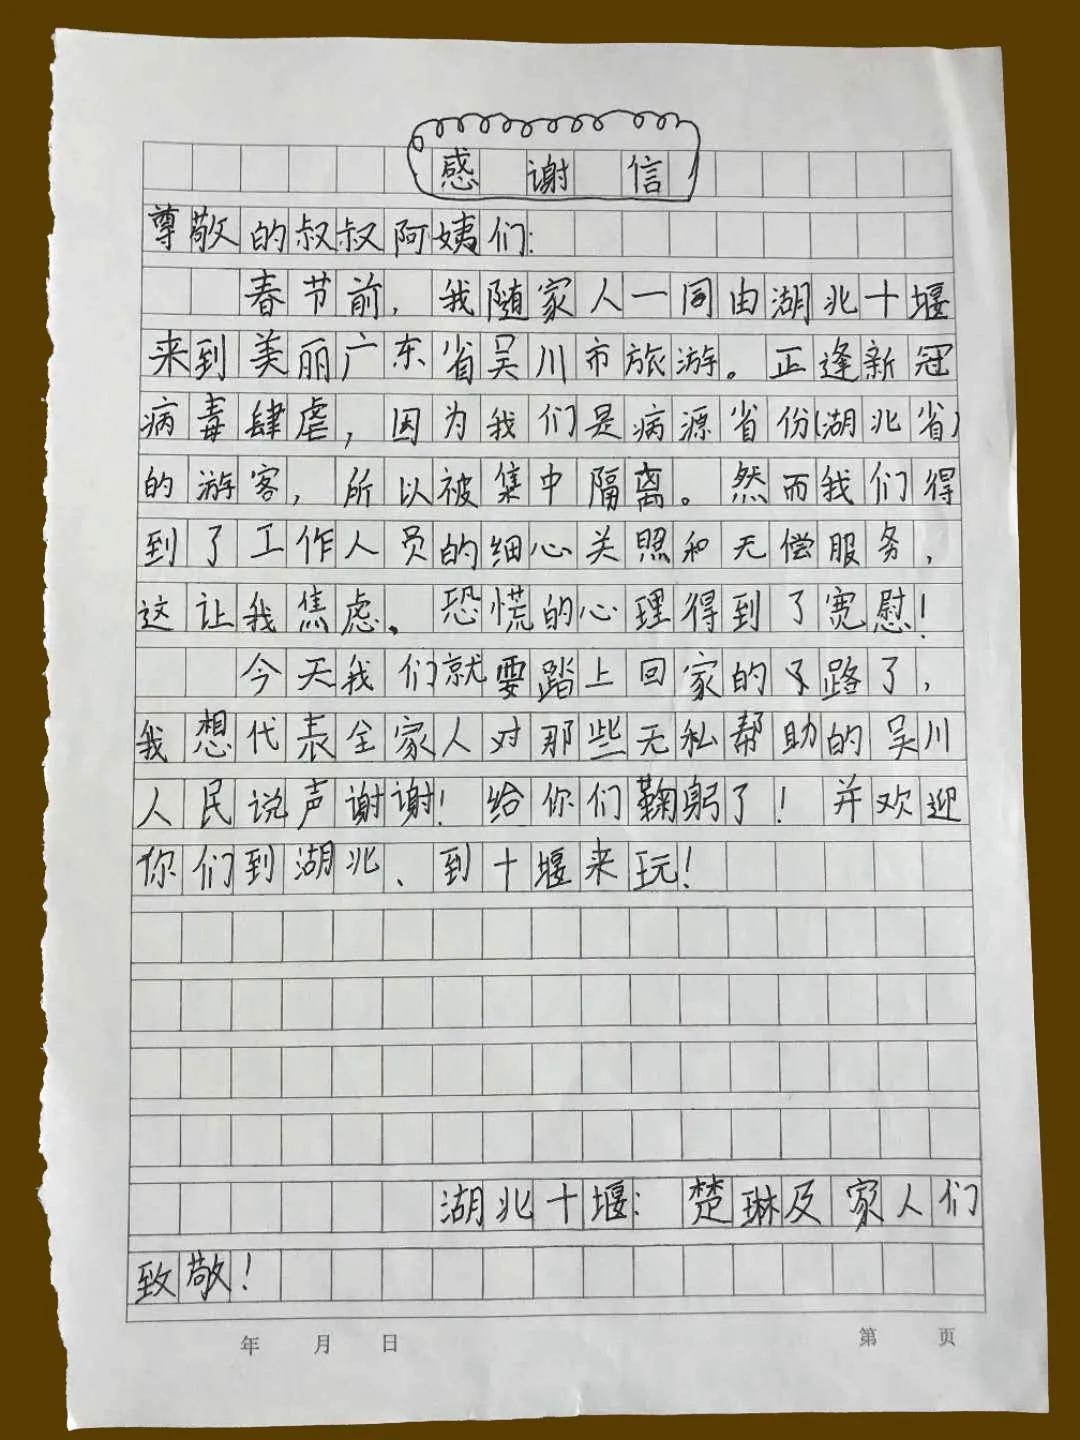 感谢信
尊敬的叔叔阿姨们：
春节前，我随家人一同由湖北十堰
来到美丽广东省吴川市旅游。正逢新冠
病毒肆虐，因为我们是病源省份(湖北省)
的游客，所以被集中隔离。然而我们得
到了工作人员的细心关照和无偿服务，
这让我焦虑、恐慌的心理得到了宽慰！
今天我们就要踏上回家的路了，
我想代表全家人对那些无私帮助的吴川
人民说声谢谢！给你们鞠躬了！并欢迎
你们到湖北、到十堰来玩！
湖北十堰：楚琳及家人们
致敬！
年 月 日 第 页